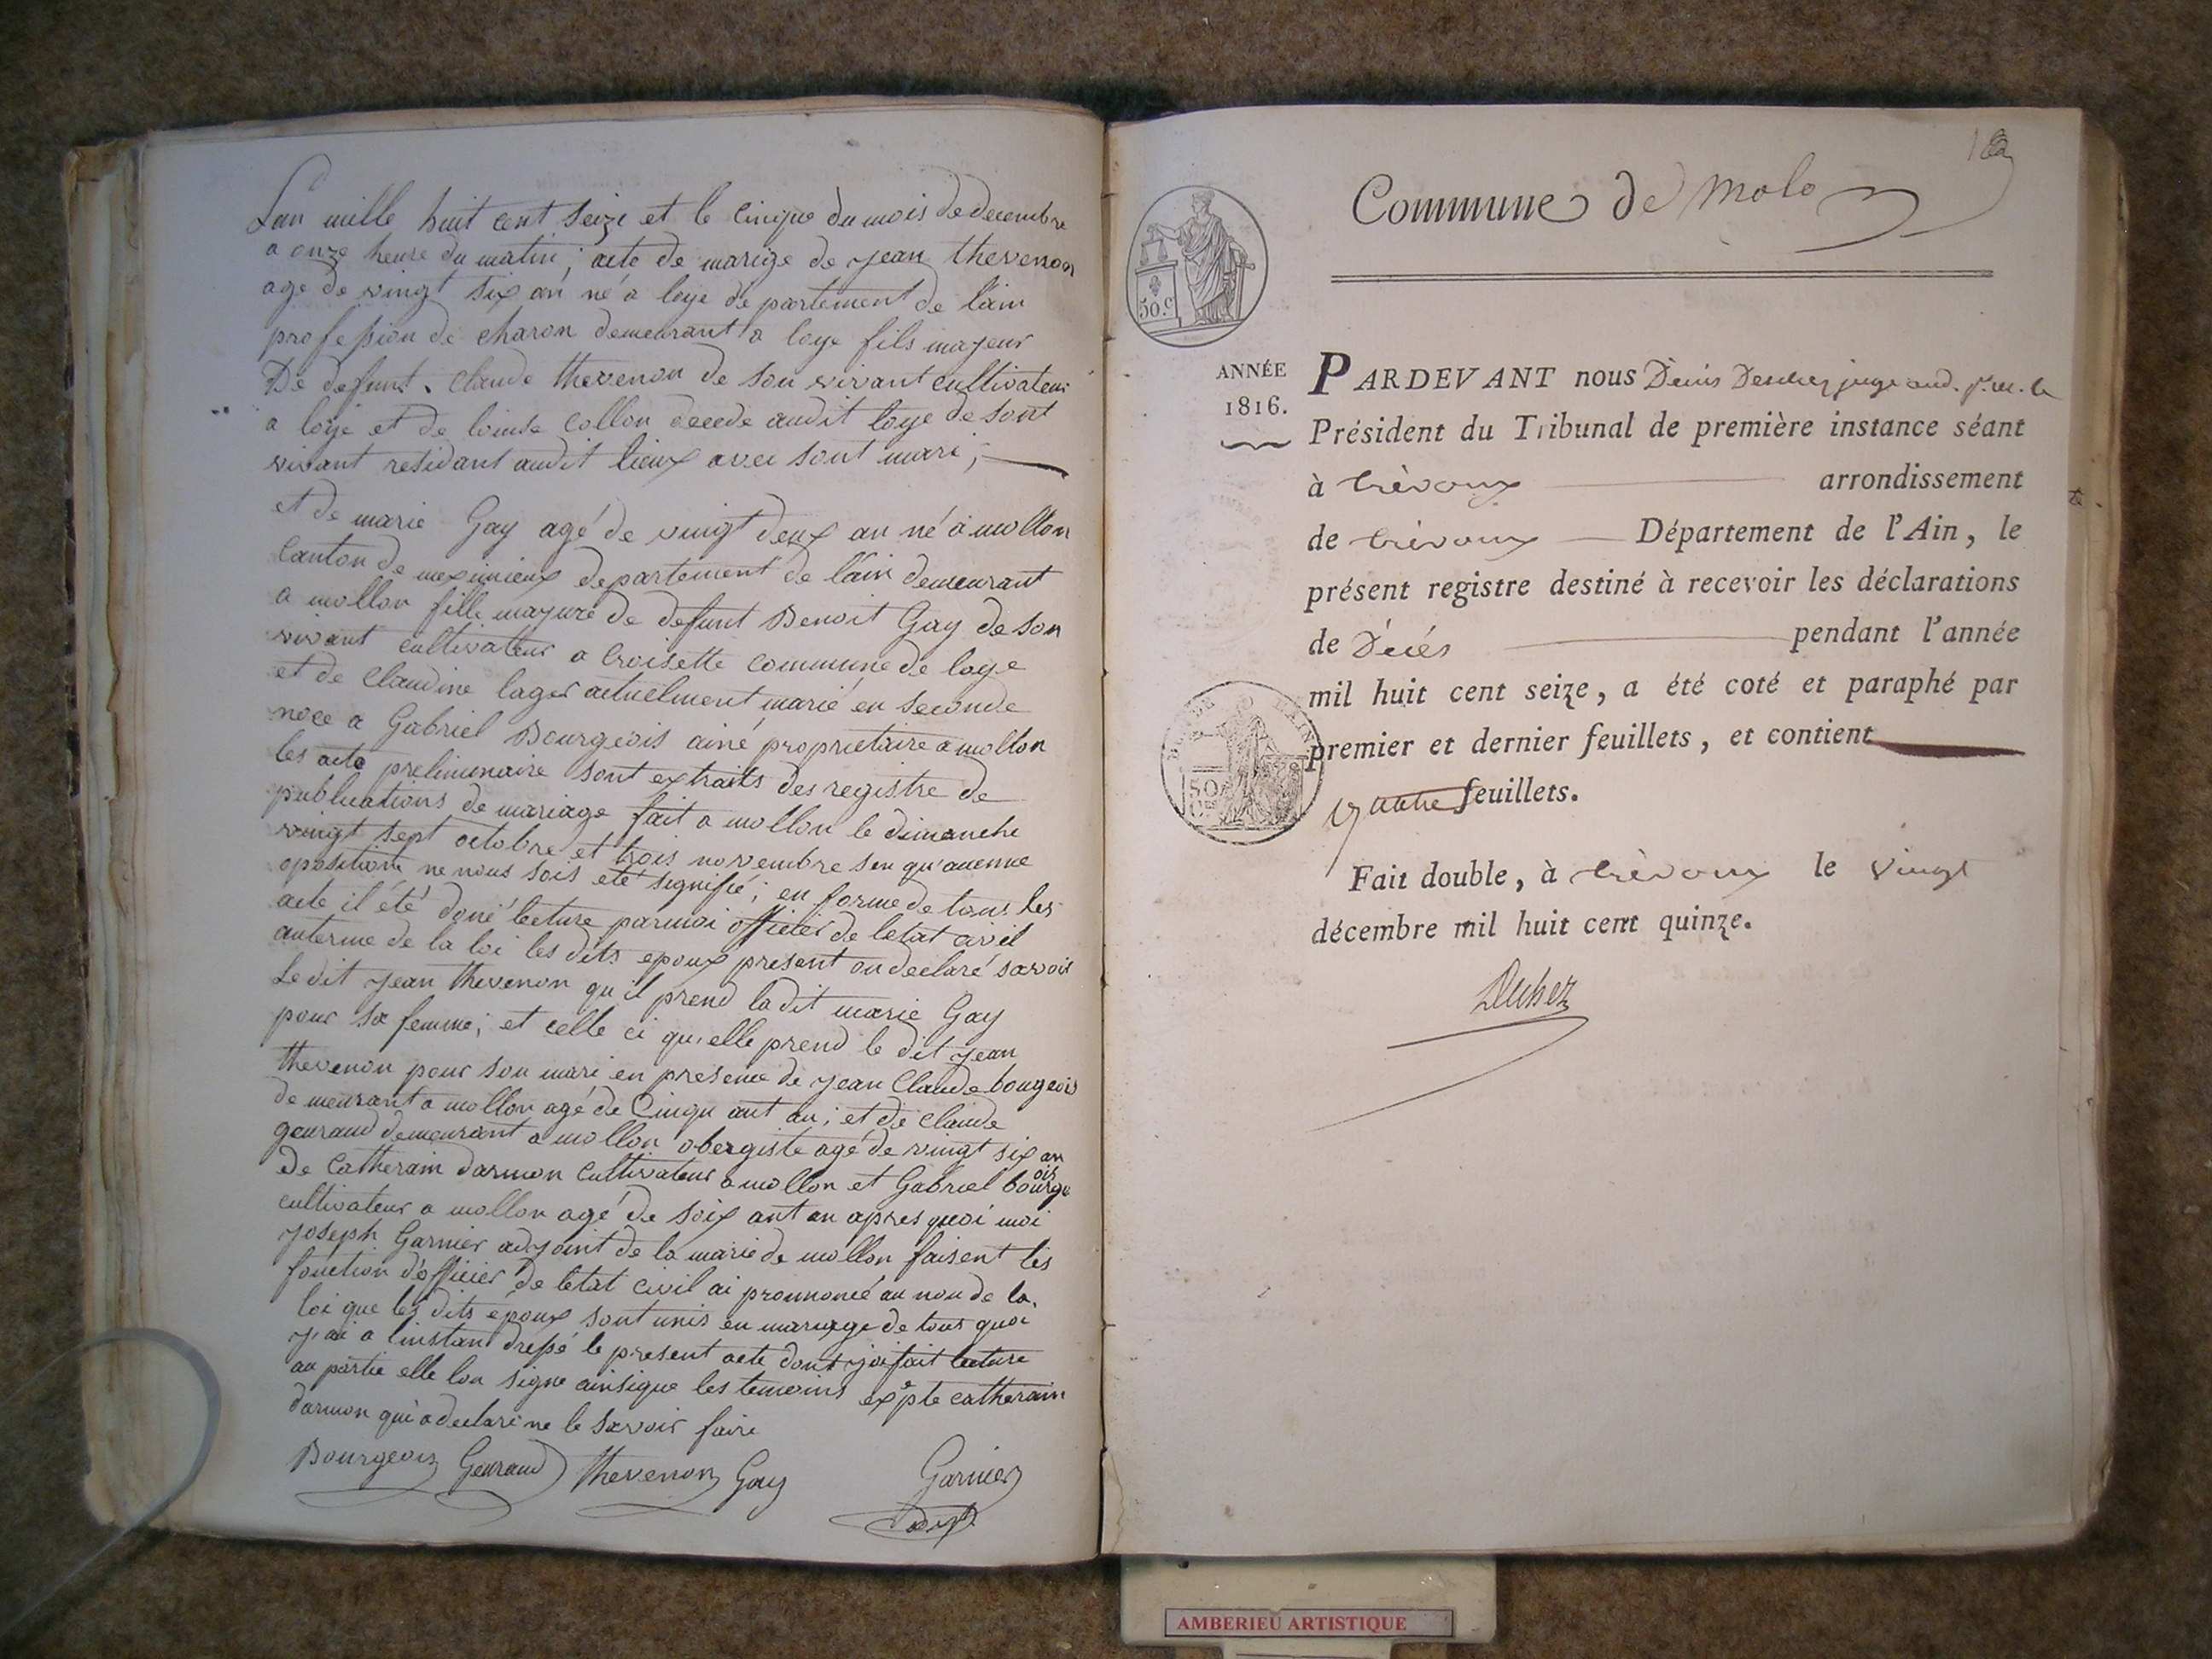 Lan mille huit cent seize et le cinque du mois de decembre
a onze heure du matin; acte de marige de jean thevenon
age de vingt six an né a loye departement de l'ain
profession de charon demeurant a loye fils majeur
De defunt. claude thevenon de son vivant cultivateur
a loye et de louise collon decede audit loye de sont
vivant residant audit lieux avec sont mari;
et de marie Gay agé de vingt deux an né a mollon
canton de meximieux departement de l'ain demeurant
a mollon fille majure de defunt Benoit Gay de son
vivant cultivateur a Croisette commune de loye
et de claudine lager actuelment marié en seconde
noce a Gabriel Bourgeois ainé proprietaire a mollon
les acte preliminaire sont extraits des registre de
publications de mariage fait a mollon le dimanche
vingt sept octobre et trois novembre sen qu'auenne
oposition ne nous sois eté signifié; en forme de tous les
acte il été doné lecture par moi officier de letat civil
auterme de la loi les dits epoux present on declaré savoir
Le dit jean thevenon qu'il prend la dit marie Gay
pour sa femme; et celle ci qu'elle prend le dit jean
thevenon pour son mari en presence de jean Claude bougeois
demeurant a mollon agé de Cinqu ant an; et de claude
geuraud demeurant a mollon obergiste agé de vingt six an
De Catherain darmon cultivateur a mollon et Gabriel bourgeois
cultivateur a mollon agé de soix ant an apres quoi moi
joseph Garnier adjoint de la marie de mollon faisent les
fonction d'officier de letat civil ai prononcé au non de la
loi que les dits époux sont unis en mariage de tout quoi
j'ai a linstant dressé le present acte dont j'ai fait lecture
au partie elle lon signe ainsique les temoins exepte catherain
darmon qui a declaré ne le savoir faire
Bourgeois Geuraud thevenon Gay Garnier
adjt
Commune de Molon
50.c
ANNÉE
1816.
PARDEVANT nous Denis Deschez juge aud.
Président du Tribunal de première instance séant
à trèvoux arrondissement
de trèvoux Département de l'Ain, le
présent registre destiné à recevoir les déclarations
de Décés pendant l'année
mil huit cent seize, a été coté et paraphé par
premier et dernier feuillets, et contient
quatre feuillets.
50
Fait double, à trèvoux le vingt
décembre mil huit cent quinze.
AMBERIEU ARTISTIQUE